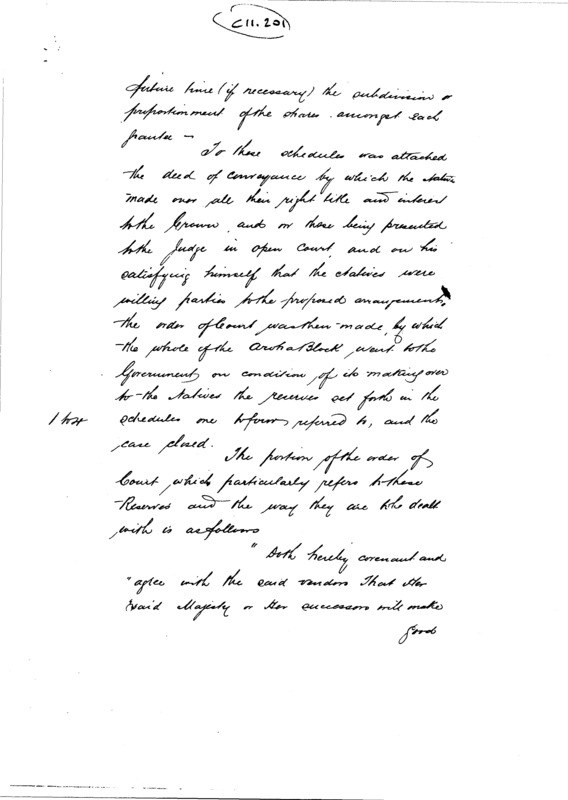 C11.201
future time (if necessary) the subdivision or
proportionment of the shares amongst each
grantee —
To these schedules was attached
the deed of conveyance by which the Natives
made over all their right title and interest
to the Crown, and on these being presented
to the Judge in open Court, and on his
satisfying himself that the Natives were
willing parties to the proposed arrangements,
the order of Court was then made, by which
the whole of the Aroha Block went to the
Government, on condition of its making over
to the Natives the reserves set forth in the
1 to 4
schedules one to four, referred to, and the
case closed.
The portion of the order of
Court which particularly refers to these
Reserves and the way they are to be dealt
with is as follows
"Doth hereby covenant and
"agree with the said vendors That Her
"said Majesty or Her successors will make
good